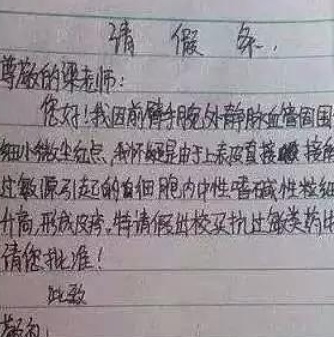 请假条.
尊敬的梁老师:
您好!我因前臂手腕外静脉血管周围
细小微尘红点,我怀疑是由于上表皮直接接触
过敏源引起的白细胞内中性嗜碱性粒细
升高,形成皮疹。特请假出校买抗过敏类药
请您批准!
此致